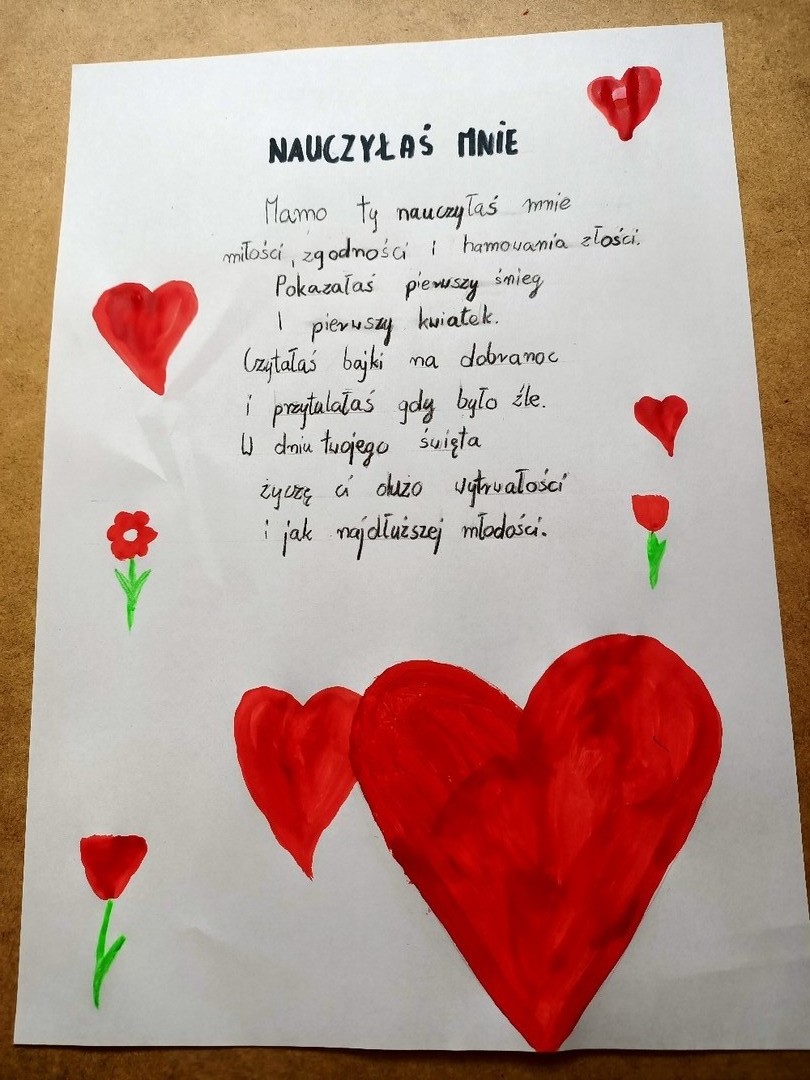 NAUCZYŁAŚ MNIE
Mamo ty nauczyłaś mnie
miłości, zgodności i hamowania złości.
Pokazałaś pierwszy śnieg
I pierwszy kwiatek.
Czytałaś bajki na dobranoc
i przytulałaś gdy było źle.
W dniu twojego święta
życzę ci dużo wytrwałości
i jak najdłuższej młodości.